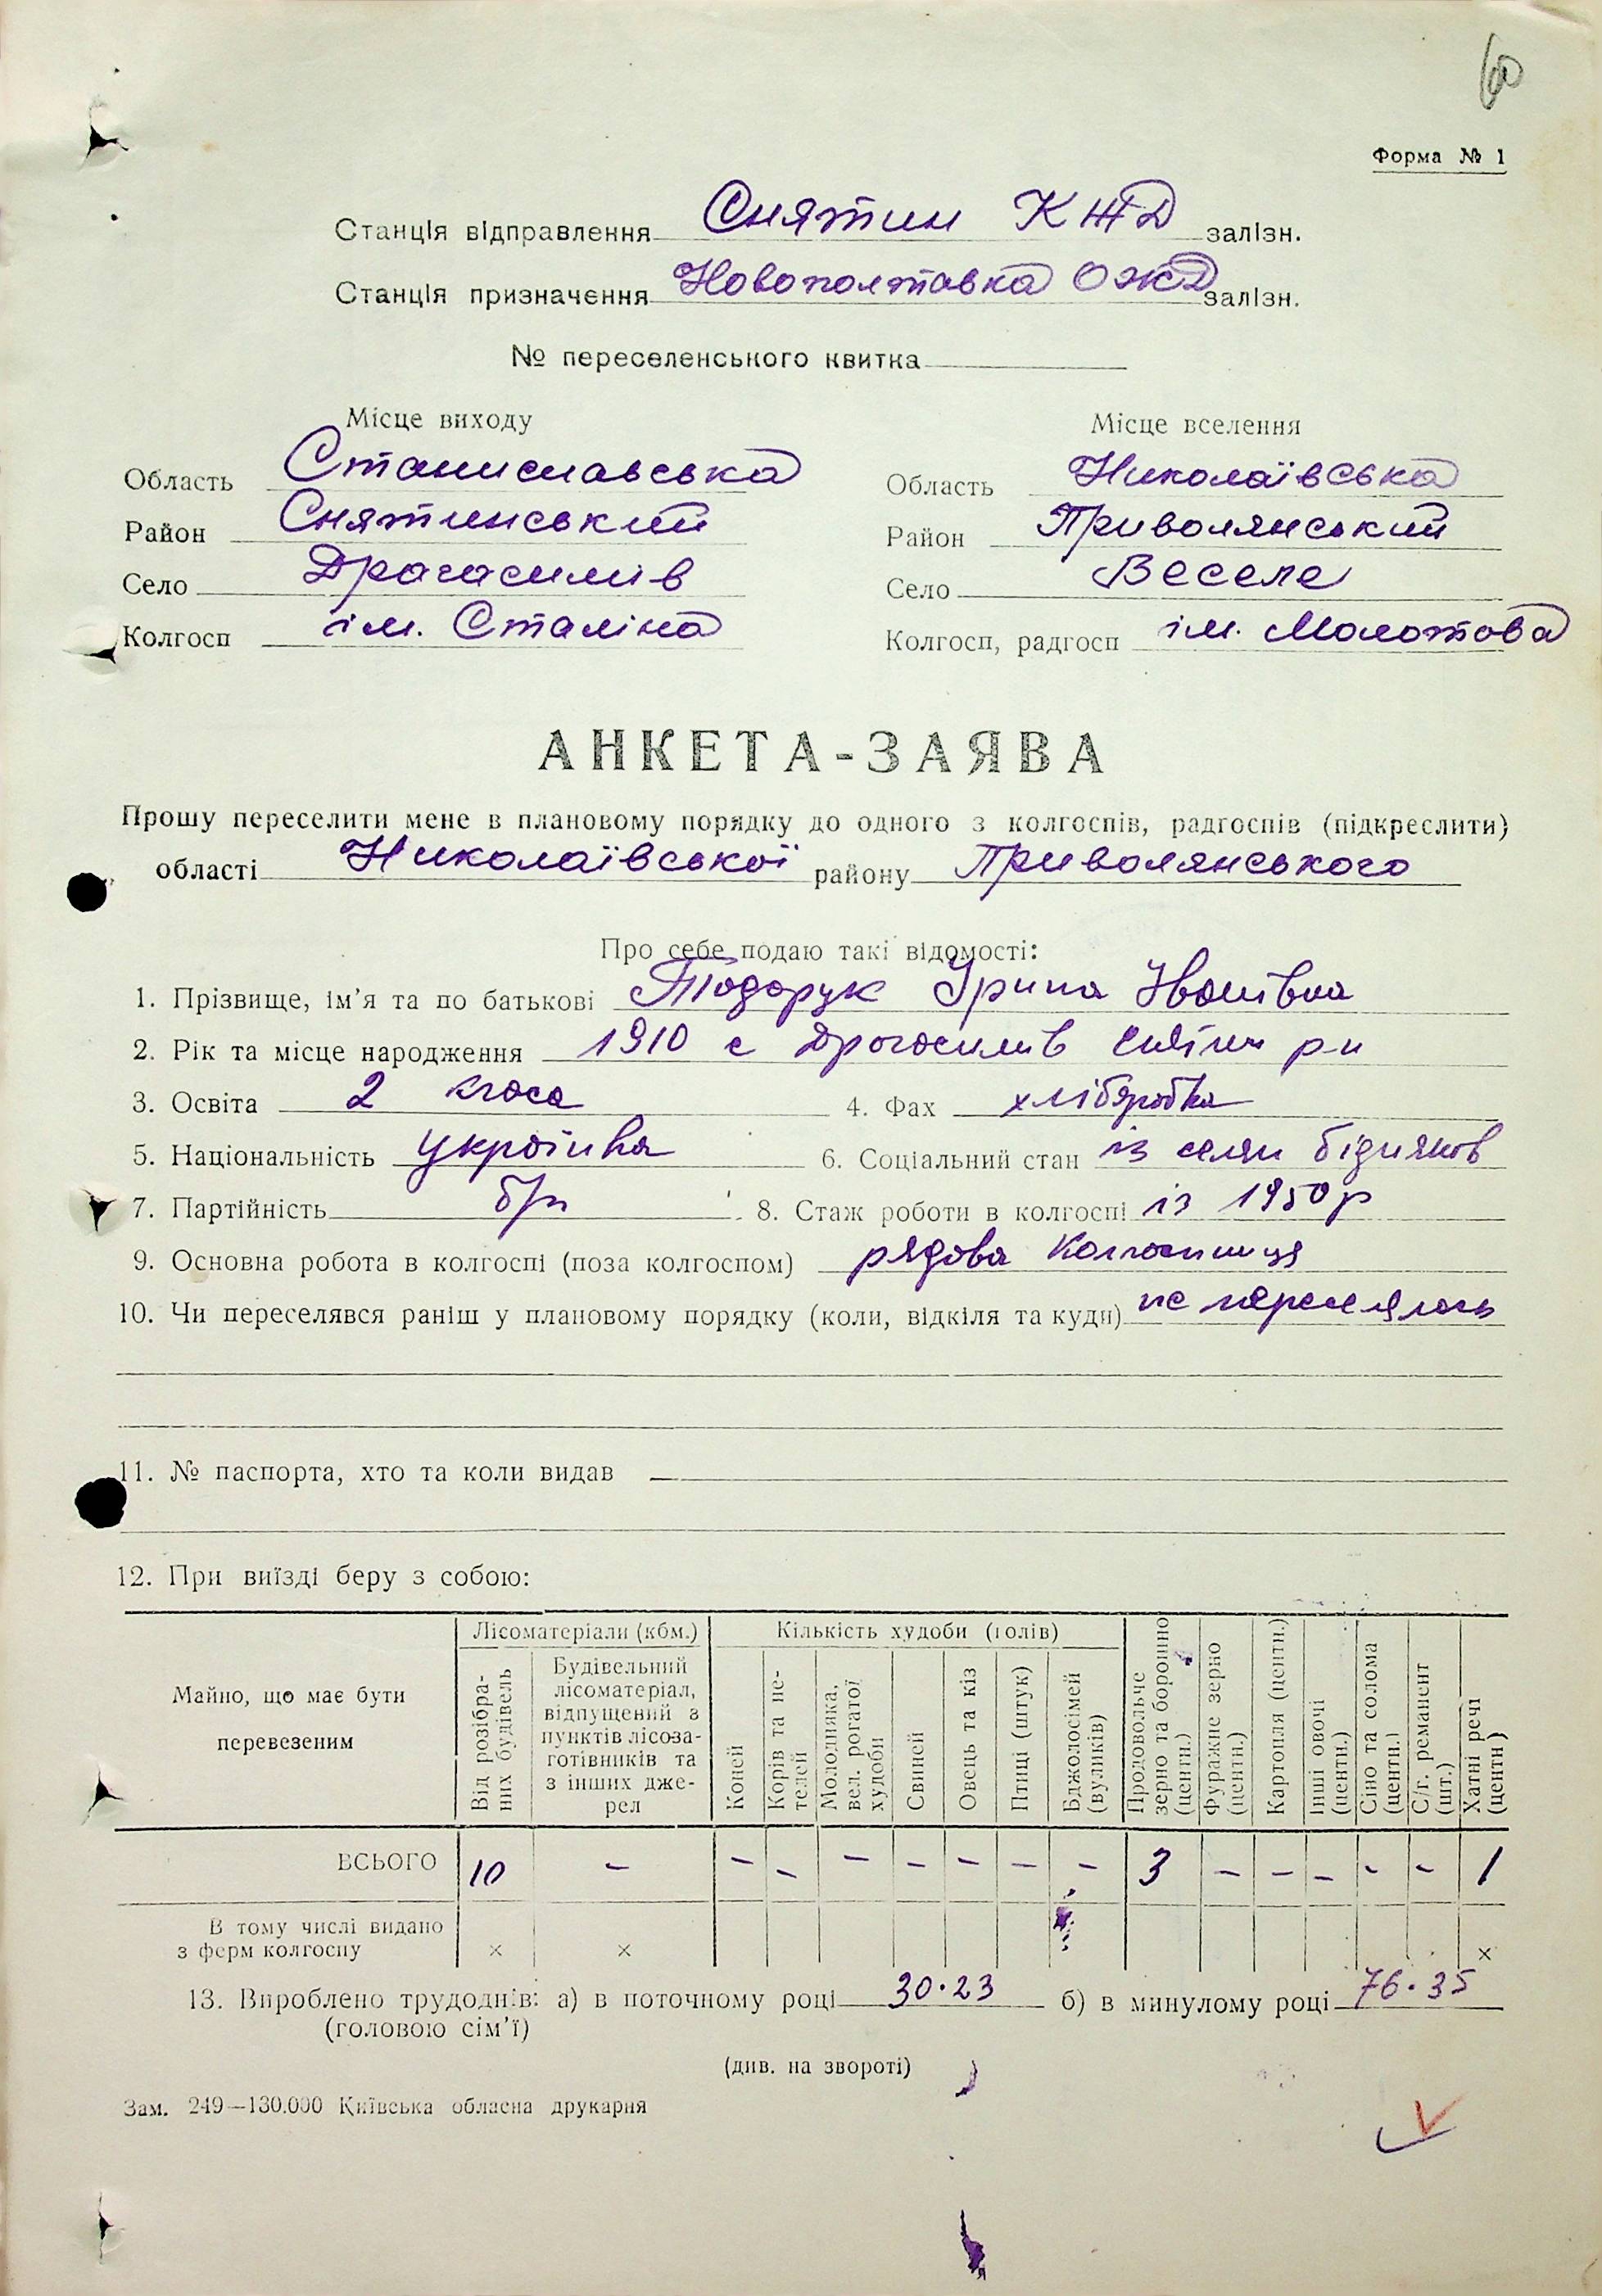 60
Форма № 1
Станція відправлення Снятин КЖД залізн.
Станція призначення Новополтавка ОЖД залізн.
№ переселенського квитка
Місце виходу
Місце вселення
Область Станиславська
Область Николаївська
Район Снятинський
Район Приволянський
Село Драгасимів
Село Веселе
Колгосп ім. Сталіна
Колгосп, радгосп ім. Молотова
АНКЕТА-ЗАЯВА
Прошу переселити мене в плановому порядку до одного з колгоспів, радгоспів (підкреслити)
області Николаївської району Приволянського
Про себе подаю такі відомості:
1. Прізвище, ім’я та по батькові Тодорук Ірина Іванівна
2. Рік та місце народження 1910 с Драгасимів Снятин р-н
3. Освіта 2 класа 4. Фах хліборобка
5. Національність українка 6. Соціальний стан із селян бідняков
7. Партійність б/п 8. Стаж роботи в колгоспі із 1950 р
9. Основна робота в колгоспі (поза колгоспом) рядова колгоспниця
10. Чи переселявся раніш у плановому порядку (коли, відкіля та куди) не переселялась
11. № паспорта, хто та коли видав
12. При виїзді беру з собою:
Майно, що має бути перевезеним
Лісоматеріали (кбм.)
Кількість худоби (голів)
Від розібраних будівель
Будівельний лісоматеріал, відпущений з пунктів лісозаготівників та з інших джерел
Коней
Корів та нетелей
Молодняка, вел. рогатої худоби
Свиней
Овець та кіз
Птиці (штук)
Бджолосімей (вуликів)
Продовольче зерно та борошно (центн.)
Фуражне зерно (центн.)
Картопля (центн.)
Інші овочі (центн.)
Сіно та солома (центн.)
С/г. реманент (шт.)
Хатні речі (центн)
ВСЬОГО 10 – – – – – – – – 3 – – – – – 1
В тому числі видано
з ферм колгоспу × × ×
13. Вироблено трудоднів: а) в поточному році 30.23 б) в минулому році 76.35
(головою сім’ї)
(див. на звороті)
Зам. 249—130.000 Київська обласна друкарня